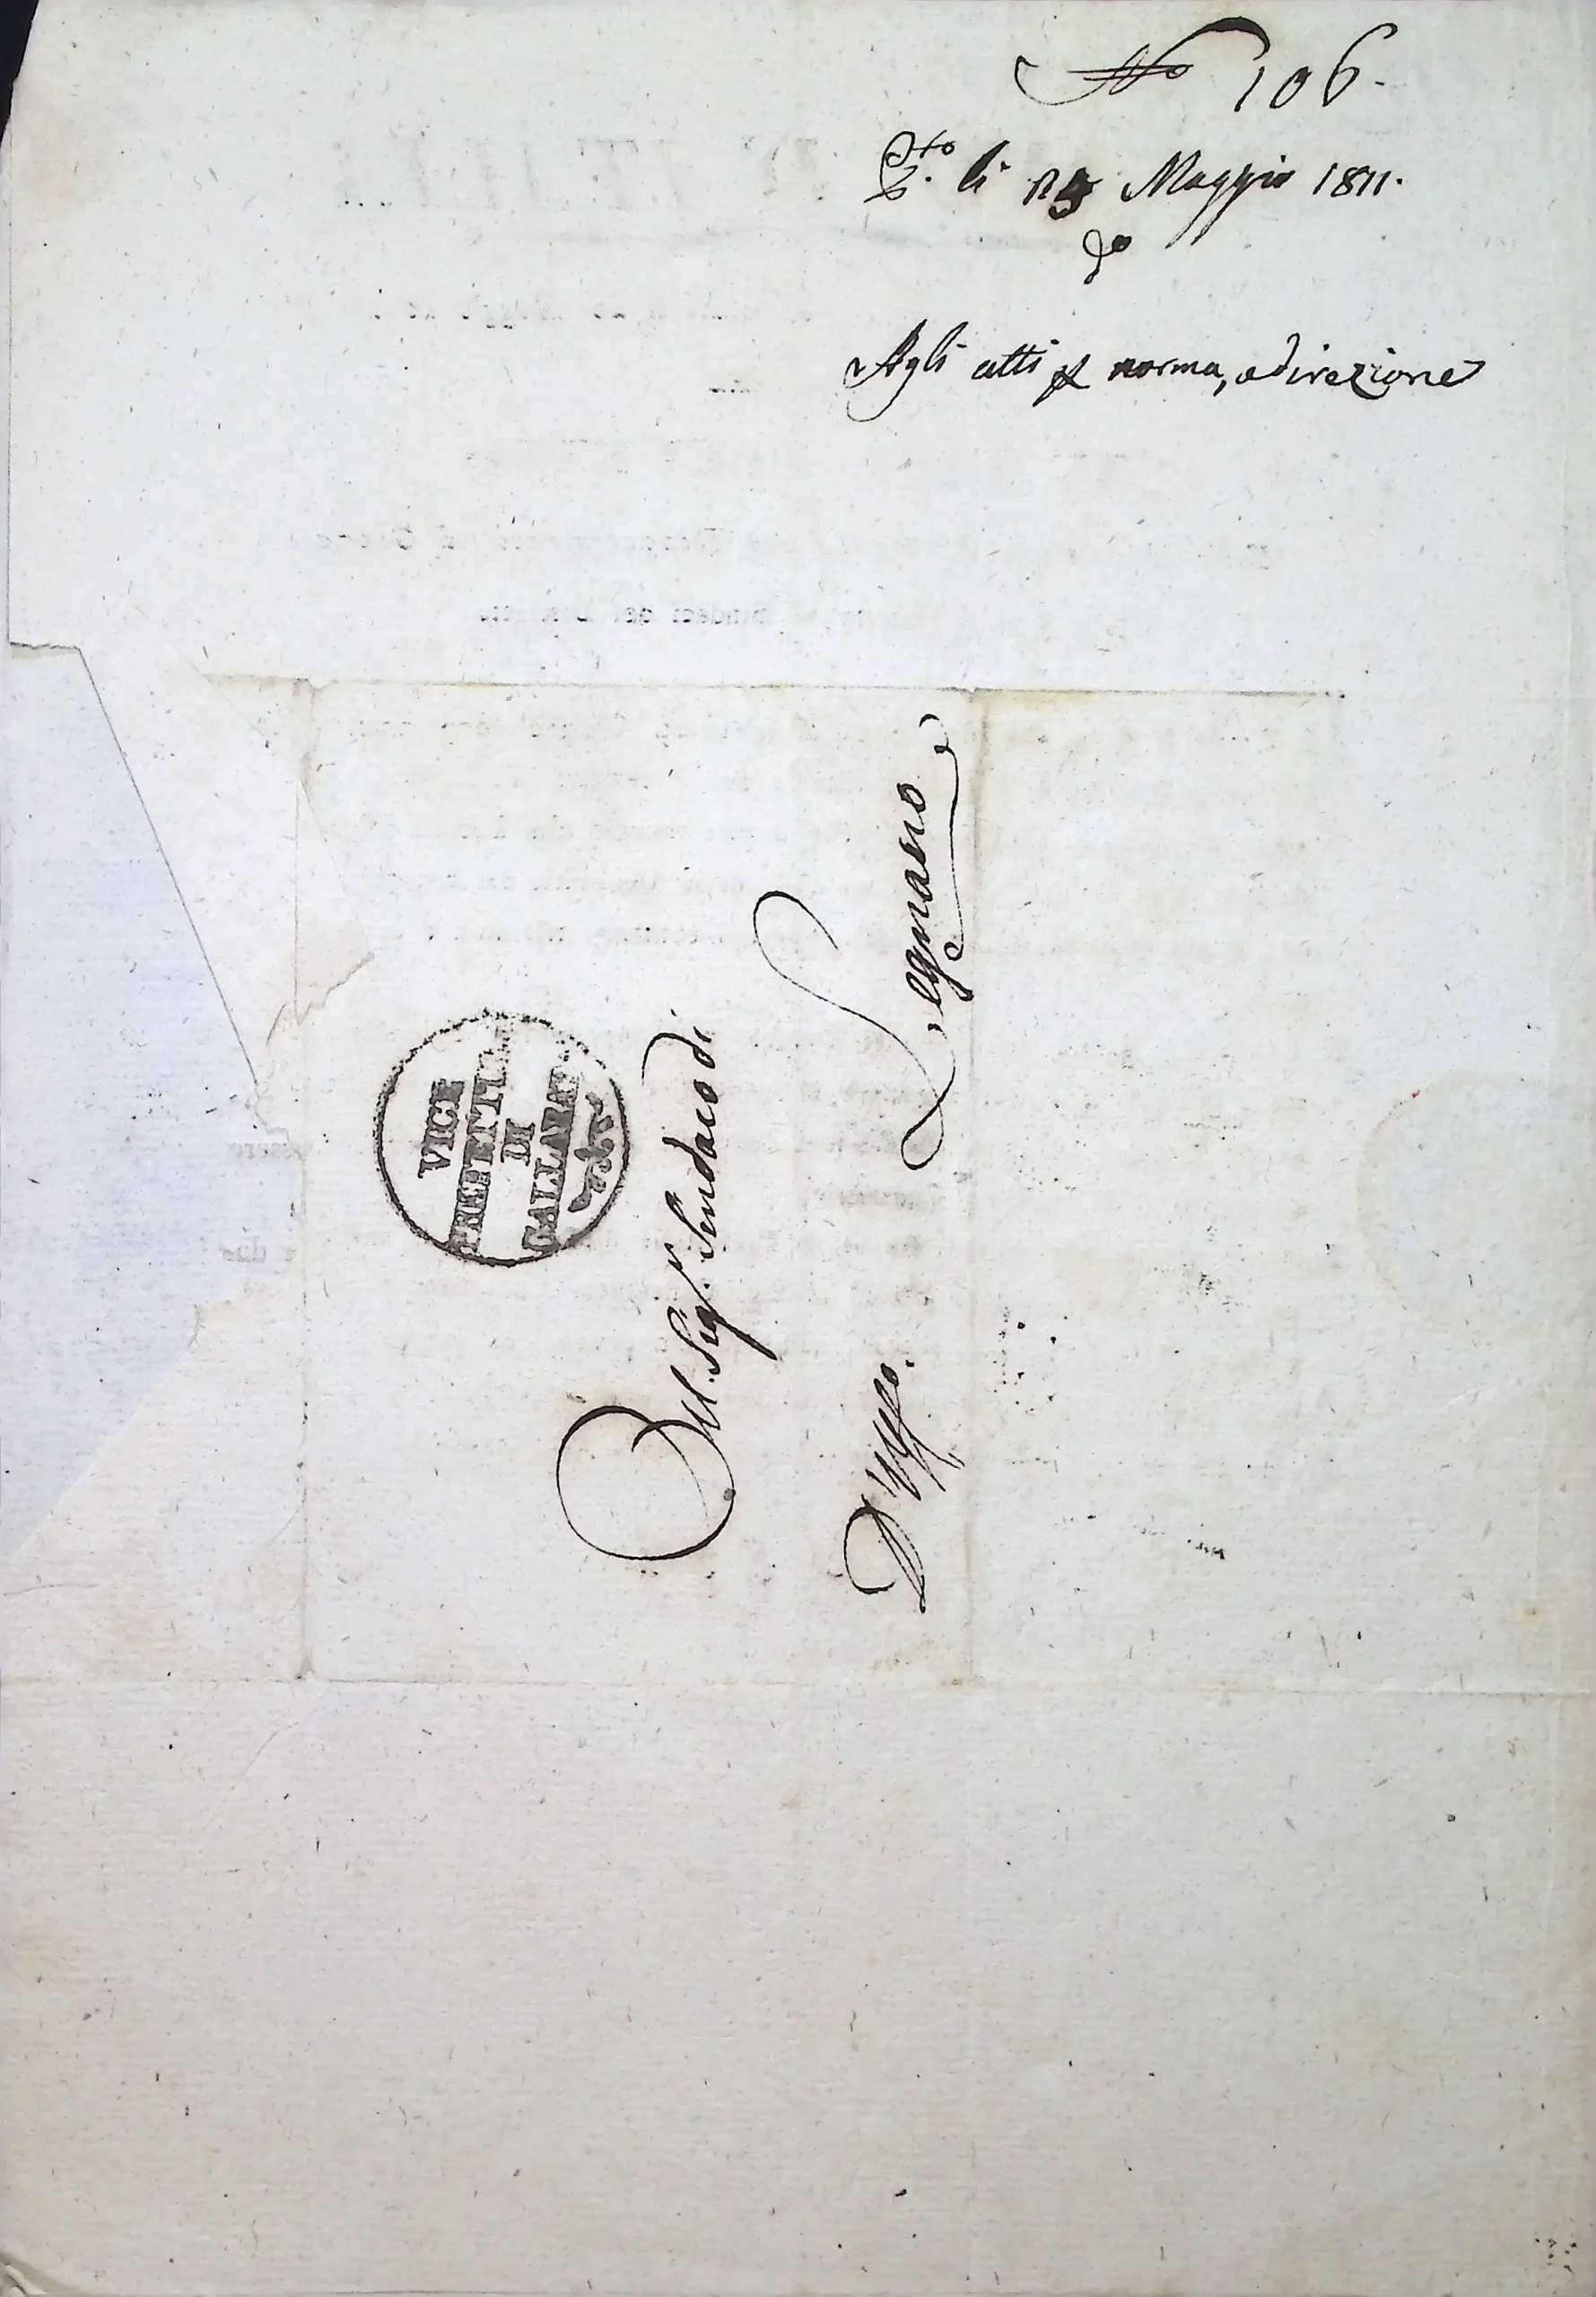 No 106.
P.to li 25 Maggio 1811.
do
Agli atti p norma, e direzione
VICE
PREFETTURA
DI
GALLARATE
Al Sigr. Sindaco di
Legnano
D'Uffo.